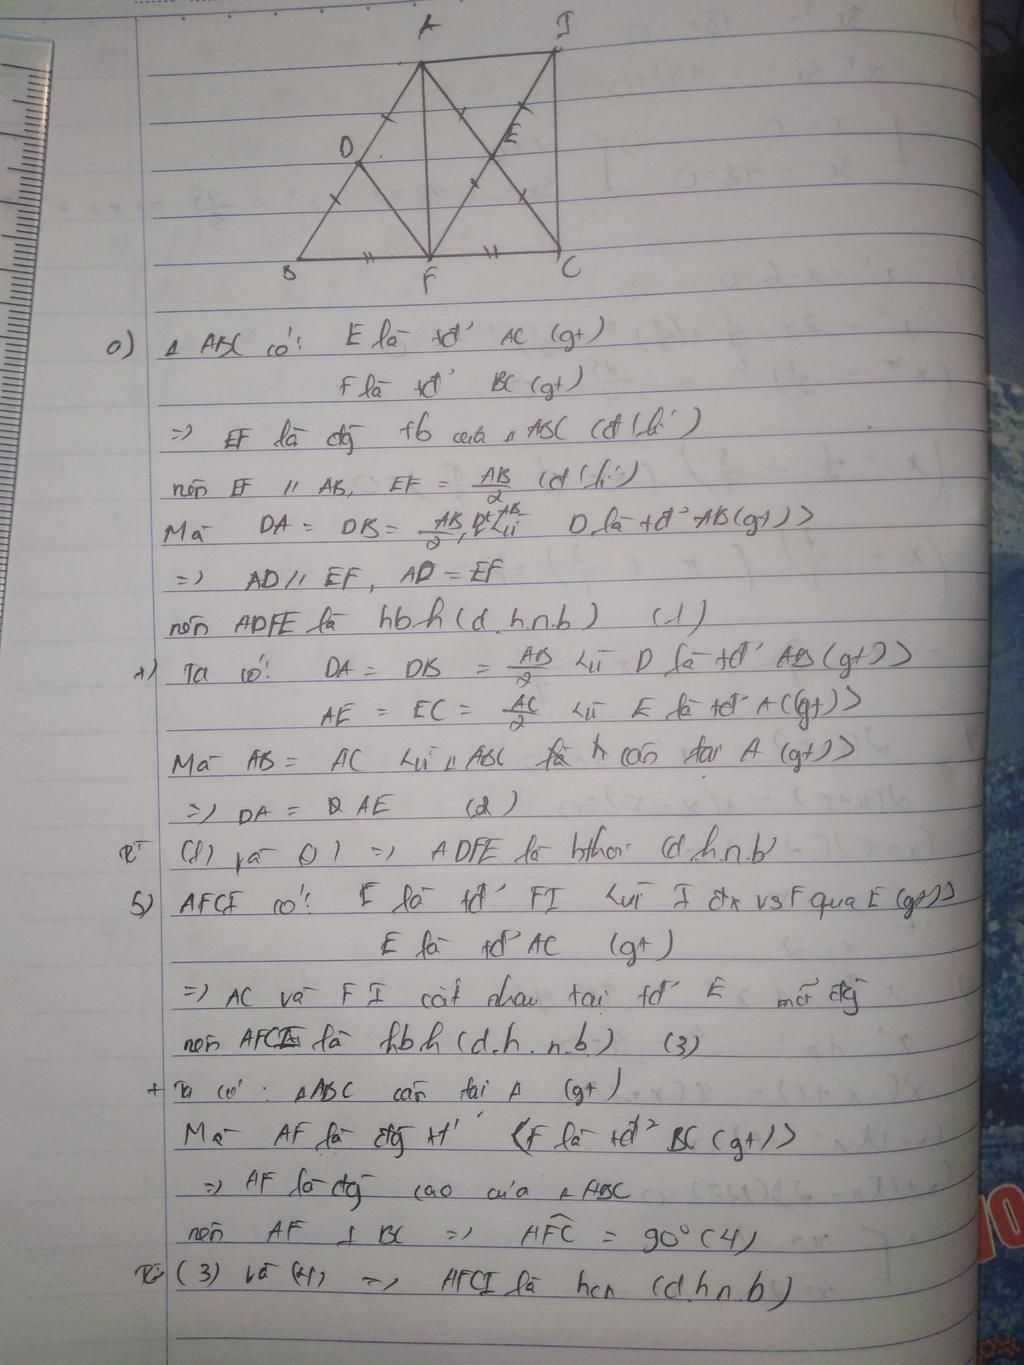 A I
D E
B F C
a) Δ ABC có: E là tđ AC (gt)
F là tđ BC (gt)
=> EF là đg tb của Δ ABC (đ/lí)
nên EF // AB, EF = AB/2 (đ/lí)
Mà DA = DB = AB/2, D là tđ AB (gt)>
=> AD // EF, AD = EF
nên ADFE là hbh (d.h.n.b) (1)
+) Ta có: DA = DB = AB/2 <vì D là tđ AB (gt)>
AE = EC = AC/2 <vì E là tđ AC (gt)>
Mà AB = AC <vì Δ ABC là Δ cân tại A (gt)>
=> DA = AE (2)
Từ (1) và (2) => ADFE là hthoi (d.h.n.b)
b) AFCI có: E là tđ FI <vì I đx vs F qua E (gt)>
E là tđ AC (gt)
=> AC và FI cắt nhau tại tđ E mỗi đg
nên AFCI là hbh (d.h.n.b.) (3)
+ Ta có: Δ ABC cân tại A (gt)
Mà AF là đg tt <F là tđ BC (gt)>
=> AF là đg cao của Δ ABC
nên AF ⊥ BC => AFC = 90° (4)
Từ (3) và (4) => AFCI là hcn (d.h.n.b)